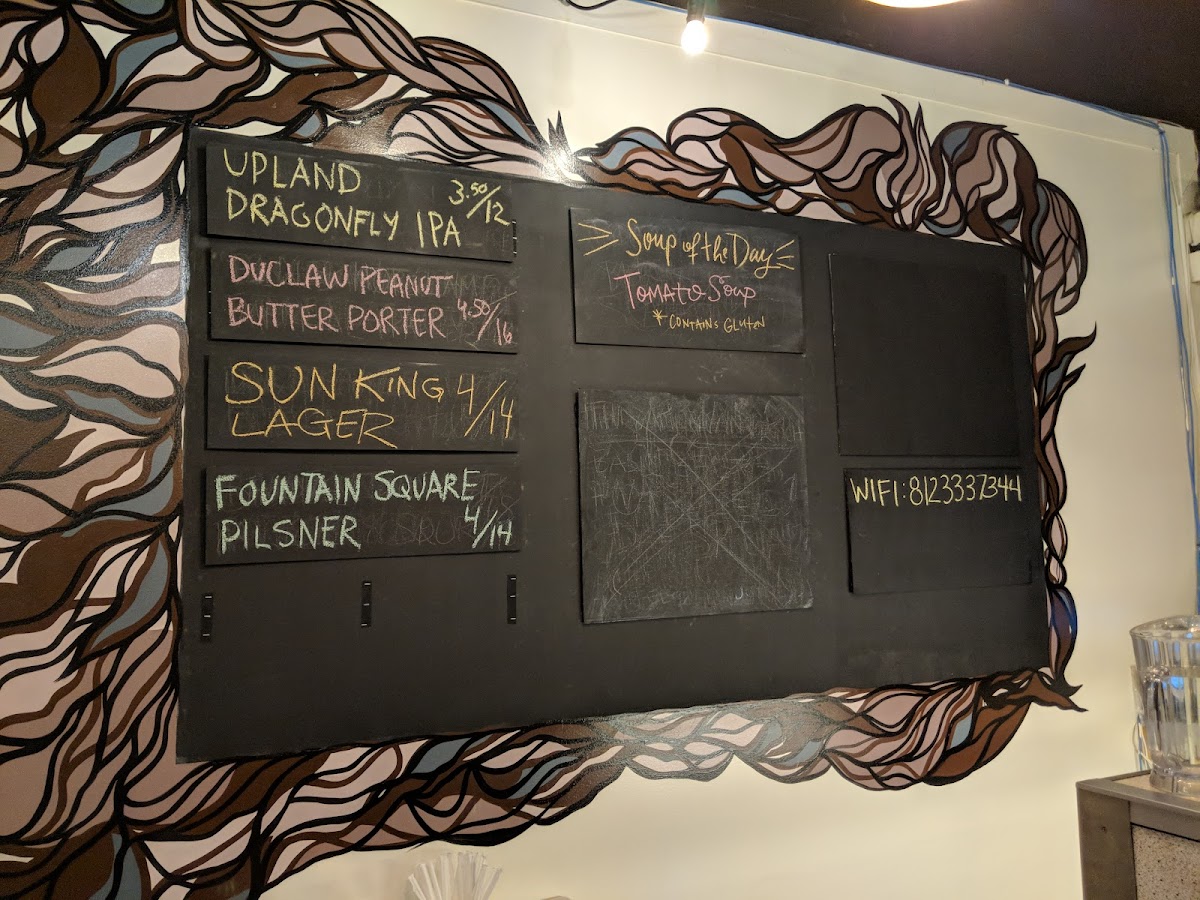 UPLAND
DRAGONFLY IPA 3.50/12
DUCLAW PEANUT
BUTTER PORTER 4.50/16
SUN KING 4/14
LAGER
FOUNTAIN SQUARE
PILSNER 4/14
Soup of the Day
Tomato Soup
*CONTAINS GLUTEN
WIFI:8123337344